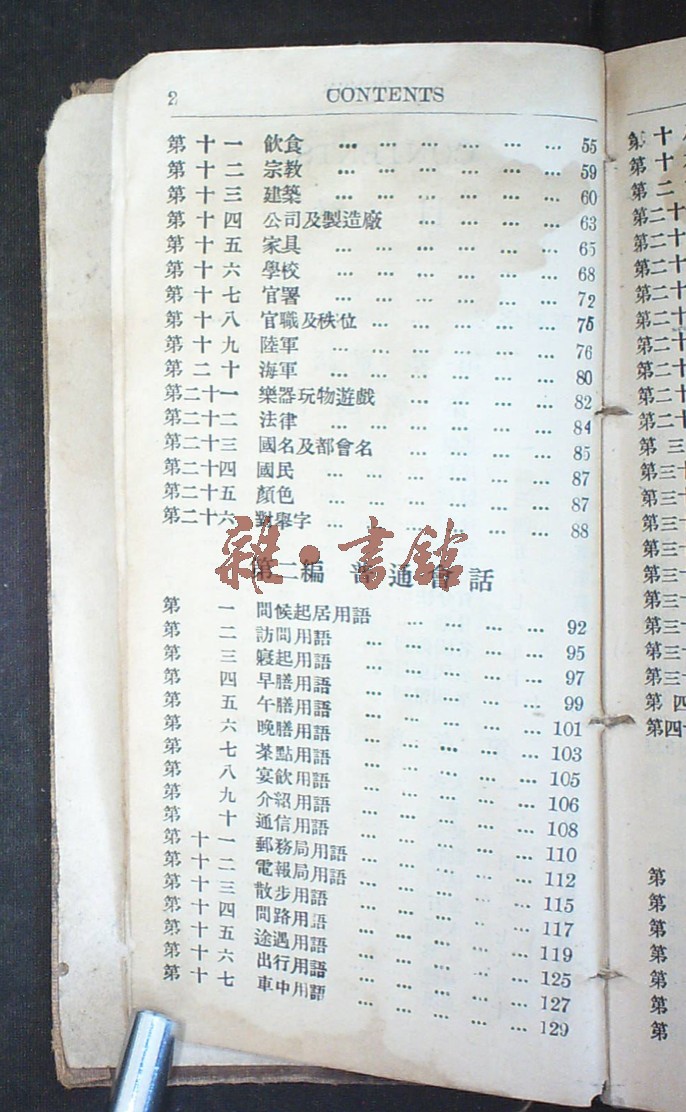 2 CONTENTS
第十一 飲食 … … … … … … 55
第十二 宗教 … … … … … … 59
第十三 建築 … … … … … … 60
第十四 公司及製造廠 … … … … 63
第十五 家具 … … … … … … 65
第十六 學校 … … … … … … 68
第十七 官署 … … … … … … 72
第十八 官職及秩位 … … … … … 75
第十九 陸軍 … … … … … … 76
第二十 海軍 … … … … … … 80
第二十一 樂器玩物遊戲 … … … … 82
第二十二 法律 … … … … … … 84
第二十三 國名及都會名 … … … … 85
第二十四 國民 … … … … … … 87
第二十五 顏色 … … … … … … 87
第二十六 對舉字 … … … … … … 88
雜·書館
第二編 普通會話
第一 問候起居用語 … … … … 92
第二 訪問用語 … … … … … 95
第三 寢起用語 … … … … … 97
第四 早膳用語 … … … … … 99
第五 午膳用語 … … … … … 101
第六 晚膳用語 … … … … … 103
第七 茶點用語 … … … … … 105
第八 宴飲用語 … … … … … 106
第九 介紹用語 … … … … … 108
第十 通信用語 … … … … … 110
第十一 郵務局用語 … … … … … 112
第十二 電報局用語 … … … … … 115
第十三 散步用語 … … … … … 117
第十四 問路用語 … … … … … 119
第十五 途遇用語 … … … … … 125
第十六 出行用語 … … … … … 127
第十七 車中用語 … … … … … 129
第十
第十
第二
第二十
第二十
第二十
第二十
第二十
第二十
第二十
第二十
第二十
第三
第三十
第三十
第三十
第三十
第三十
第三十
第三十
第三十
第三十
第四
第四十
第
第
第
第
第
第
第